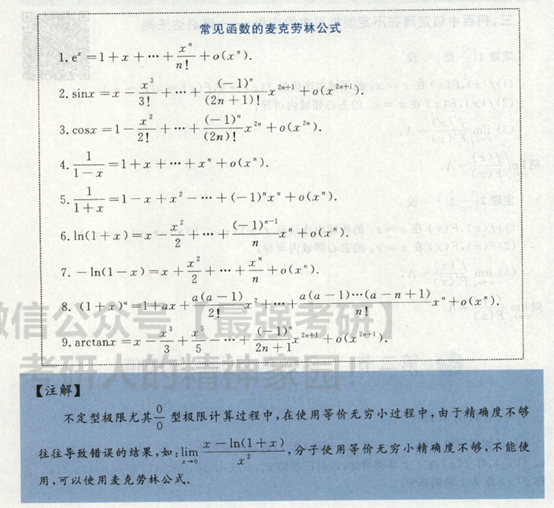 常见函数的麦克劳林公式
1. e^x = 1 + x + ⋯ + x^n/n! + o(x^n).
2. sinx = x − x^3/3! + ⋯ + (−1)^n/(2n+1)! x^{2n+1} + o(x^{2n+1}).
3. cosx = 1 − x^2/2! + ⋯ + (−1)^n/(2n)! x^{2n} + o(x^{2n}).
4. 1/(1−x) = 1 + x + ⋯ + x^n + o(x^n).
5. 1/(1+x) = 1 − x + x^2 − ⋯ + (−1)^n x^n + o(x^n).
6. ln(1+x) = x − x^2/2 + ⋯ + (−1)^{n−1}/n x^n + o(x^n).
7. −ln(1−x) = x + x^2/2 + ⋯ + x^n/n + o(x^n).
8. (1+x)^a = 1 + ax + a(a−1)/2! x^2 + ⋯ + a(a−1)⋯(a−n+1)/n! x^n + o(x^n).
9. arctanx = x − x^3/3 + x^5/5 − ⋯ + (−1)^n/(2n+1) x^{2n+1} + o(x^{2n+1}).
微信公众号【最强考研】
考研人的精神家园!
【注解】
不定型极限尤其 0/0 型极限计算过程中,在使用等价无穷小过程中,由于精确度不够
往往导致错误的结果,如: lim_{x→0} (x − ln(1+x))/x^2 ,分子使用等价无穷小精确度不够,不能使
用,可以使用麦克劳林公式.